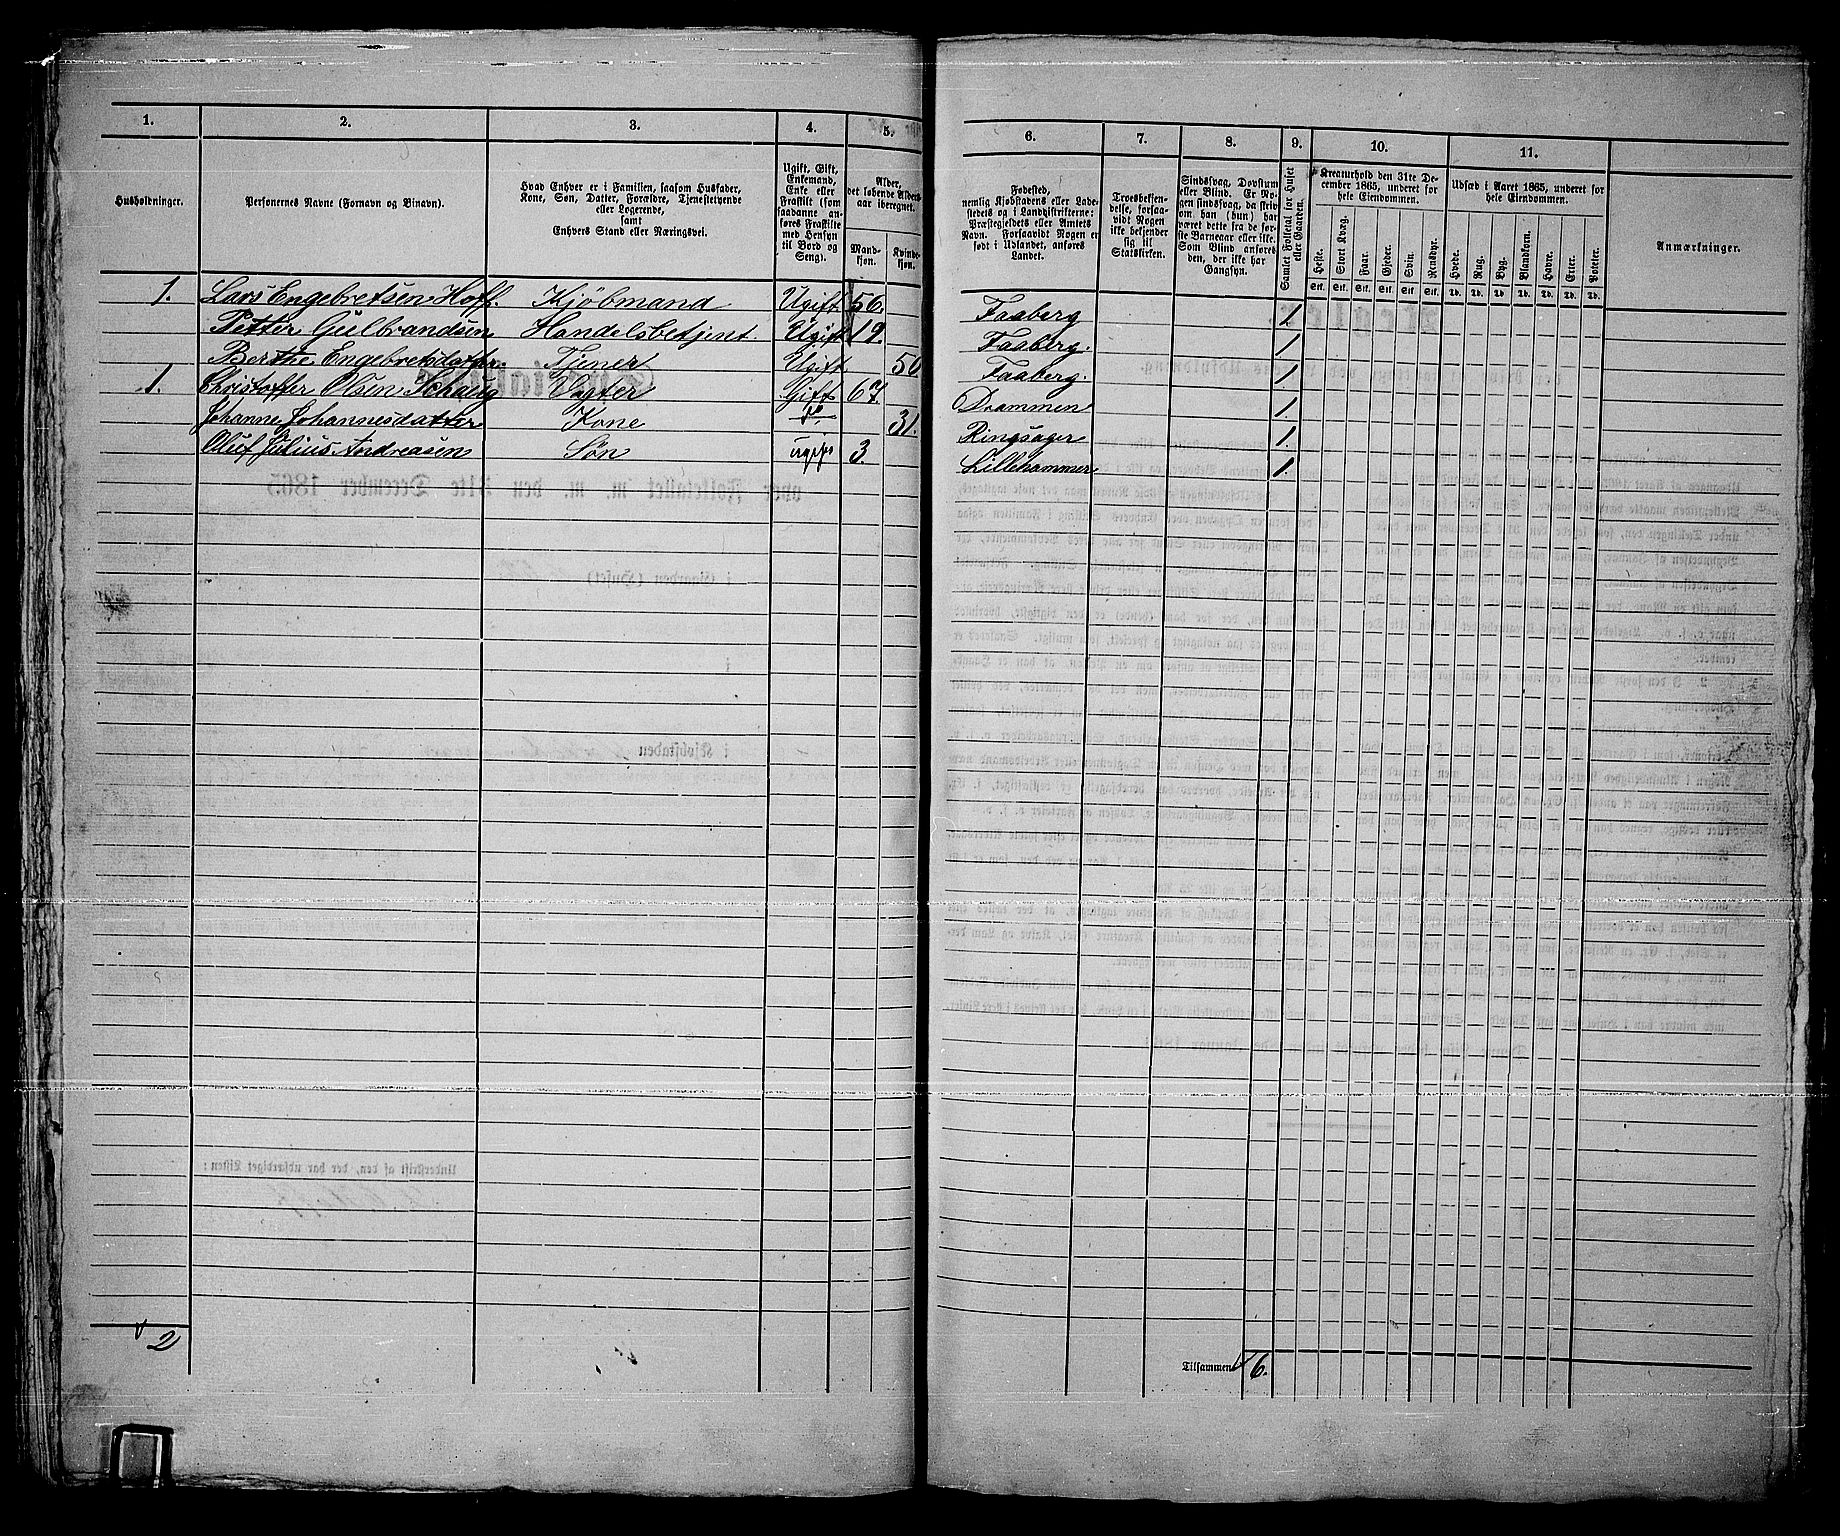 1. 2. 3. 4. 5. 6. 7. 8. 9. 10. 11.
Husholdninger.
Personernes Navne (Fornavn og Binavn).
Hvad Enhver er i Familien, saasom Husfader,
Kone, Søn, Datter, Forældre, Tjenestetyende
eller Logerende,
samt
Enhvers Stand eller Næringsvei.
Ugift, Gift,
Enkemand,
Enke eller
Fraskilt (som
saadanne an-
føres Fraskilte
med Hensyn
til Bord og
Seng).
Alder,
det løbende Alders-
aar iberegnet.
Mand-
kjøn.
Kvinde-
kjøn.
Fødested,
nemlig Kjøbstadens eller Lade-
stedets og i Landdistrikterne:
Præstegjeldets eller Amtets
Navn. Forsaavidt Nogen er
født i Udlandet, anføres
Landet.
Troesbekjen-
delse, forsaa-
vidt Nogen
ikke bekjender
sig til
Statskirken.
Sindssvag, Døvstum
eller Blind. Er No-
gen sindssvag, da skriv
om han (hun) har
været dette fra de før-
ste Barneaar eller ikke.
Som Blind anføres
den, der ikke har
Gangsyn.
Samlet Folketal for Huset
eller Gaarden.
Kreaturhold den 31te De-
cember 1865, underet for
hele Eiendommen.
Heste. Stort Kvæg. Faar. Gjeder. Svin. Rensdyr.
Stk. Stk. Stk. Stk. Stk. Stk.
Udsæd i Aaret 1865, underet for
hele Eiendommen.
Hvede. Rug. Byg. Blandkorn. Havre. Erter. Poteter.
Td. Td. Td. Td. Td. Td. Td.
Anmærkninger.
1. Lars Engebretsen Hoff. Kjøbmand Ugift 56. Faaberg 1.
Petter Gulbrandsen Handelsbetjent. Ugift 19. Faaberg. 1.
Berthe Engebretsdatter. Tjener Ugift 50 Faaberg. 1.
1. Christoffer Olsen Vægter Gift 67. Drammen 1.
Johanne Johannesdatter Kone do 31. Ringsager 1.
Oluf Julius Andreasen Søn ugift 3. Lillehammer 1.
2
Tilsammen 6.